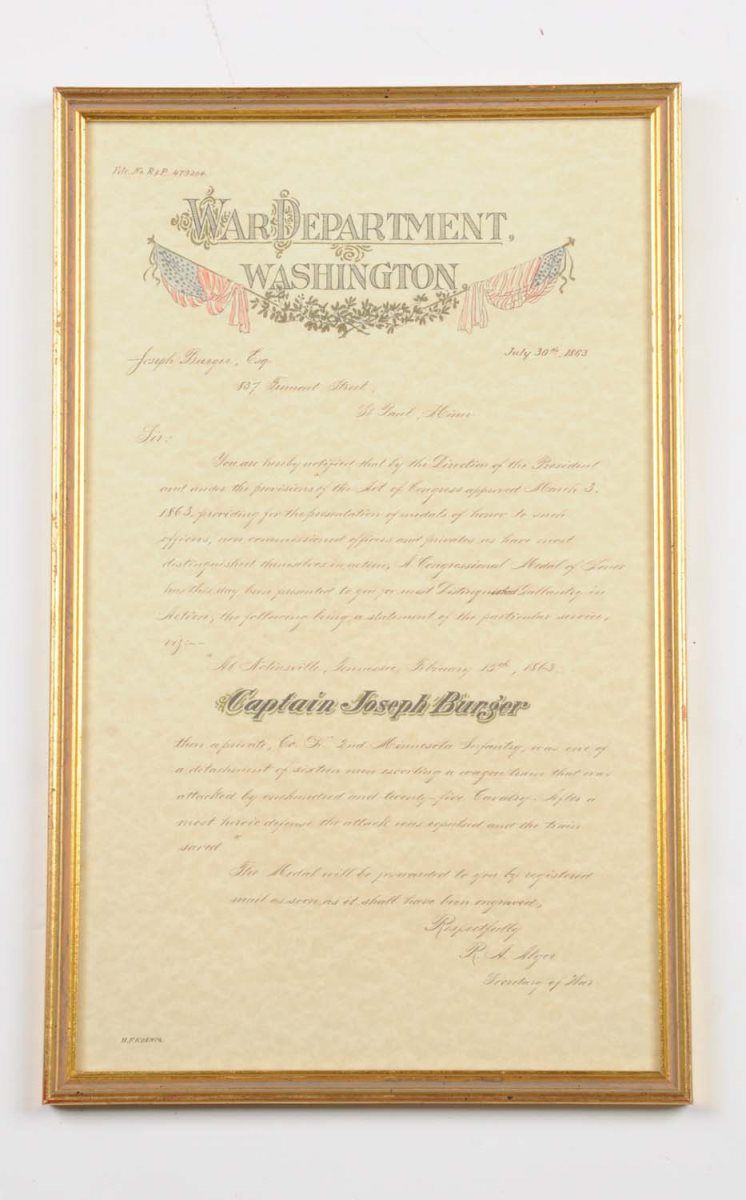 File No. R & P. 473204.
WAR DEPARTMENT,
WASHINGTON.
July 30th, 1863
Joseph Burger, Esq.
837 Fremont Street,
St Paul, Minn
Sir:
You are hereby notified that by the Direction of the President
and under the provisions of the Act of Congress approved March 3,
1863, providing for the presentation of medals of honor to such
officers, non commissioned officers and privates as have most
distinguished themselves in action, A Congressional Medal of Honor
has this day been presented to you for most Distinguished Gallantry in
Action, the following being a statement of the particular service,
viz:--
"At Nolensville, Tennessee, February 15th, 1863.
Captain Joseph Burger
then a private, Co. "F" 2nd Minnesota Infantry, was one of
a detachment of sixteen men escorting a wagon train that was
attacked by onehundred and twenty-five Cavalry. After a
most heroic defense the attack was repulsed and the train
saved."
The Medal will be forwarded to you by registered
mail as soon as it shall have been engraved,
Respectfully
R. A. Alger
Secretary of War